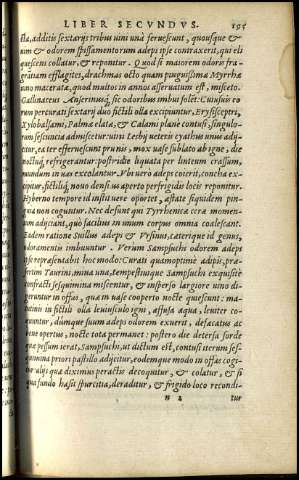 LIBER SECVNDVS. 195
sta, additis sextarijs tribus uini una feruescunt, quousque &
um & odorem spissamentorum adeps ipse contraxerit, qui eli
quescens collatur, & reponitur. Quod si maiorem odoris fra-
grātiam efflagites, drachmas octo quam pinguissimæ Myrrhæ
uino macerata, quod multos in annos asseruatum est, misceto.
Gallinaceus Anserinusq́; sic odoribus imbui solet. Cuiusuis eo
rum percurati sextarij duo fictili olla excipiuntur, Erysisceptri,
Xylobalsami, Palmæ elatæ, & Calami plane contusi, singulo-
rum sescuncia admiscetur: uini Lesbij ueteris cyathus unus adij
citur, ac ter efferuescunt prunis, mox uase sublato ab igne, die
noctuq́; refrigerantur: postridie liquata per linteum crassum,
mundum in uas excolantur. Vbi uero adeps coierit, concha ex-
cipitur, fictiliq́; nouo densi us aperto perfrigidis locis reponitur.
Hyberno tempore id instituere oportet, æstate siquidem pin-
gua non coguntur. Nec desunt qui Tyrrhenicæ ceræ momen-
tum adijciant, quo facilius in unum corpus omnia coalescant.
Eadem ratione Suillus adeps & Vrsinus, cæterique id genus,
odoramentis imbuuntur. Verum Sampsuchi odorem adeps
ipse repræsentabit hoc modo: Curati quamoptime adipis, præ-
sertim Taurini, mina una, tempestiuæque Sampsuchi exquisite
confracti sesquimina miscentur, & insperso largiore uino di-
geruntur in offas, quæ in uase cooperto nocte quiescunt: ma-
tutini in fictili olla leuiusculo igni, affusa aqua, lenter co-
quuntur, dumque suum adeps odorem exuerit, defæcatus ac
bene opertus, nocte tota permanet: postero die detersa sorde
quæ pessum ierat, Sampsuchi, ut dictum est, contusi iterum ses-
quimina priori pastillo adijcitur, eodemque modo in offas cogi-
tur alijs quæ diximus peractis decoquitur, & colatur, & si
qua fundo hæsit spurcitia, deraditur, & frigido loco recondi-
tur